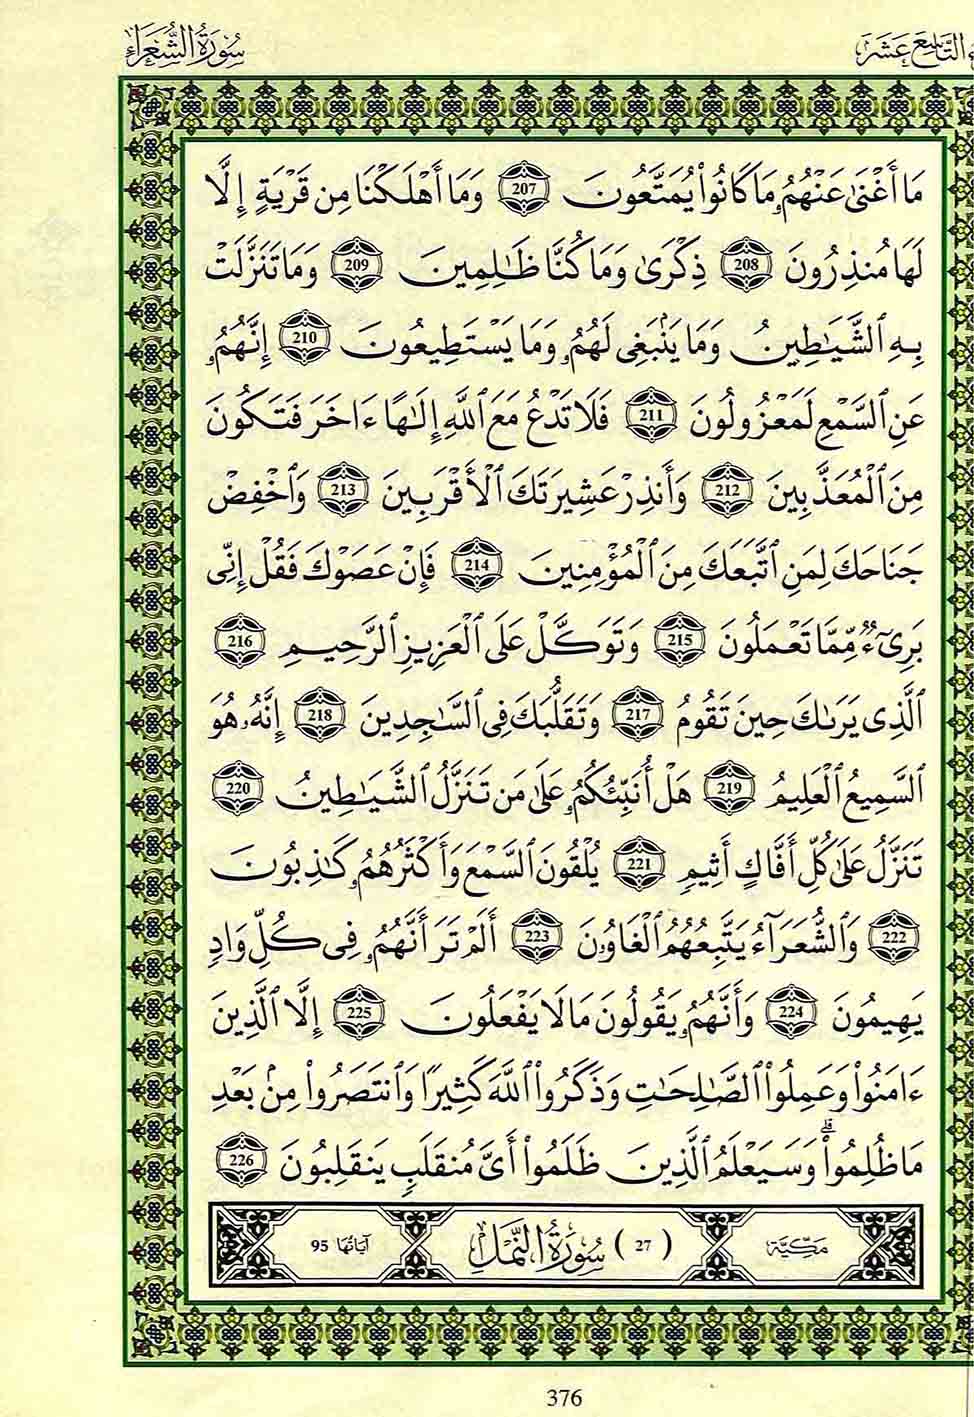 سُورَةُ الشُّعَرَاءِ
التَّاسِعَ عَشَرَ
مَا أَغْنَىٰ عَنْهُمُۥ مَا كَانُوا۟ يُمَتَّعُونَ 207 وَمَا أَهْلَكْنَا مِن قَرْيَةٍ إِلَّا
لَهَا مُنذِرُونَ 208 ذِكْرَىٰ وَمَا كُنَّا ظَٰلِمِينَ 209 وَمَا تَنَزَّلَتْ
بِهِ ٱلشَّيَٰطِينُ وَمَا يَنۢبَغِى لَهُمُۥ وَمَا يَسْتَطِيعُونَ 210 إِنَّهُمُۥ
عَنِ ٱلسَّمْعِ لَمَعْزُولُونَ 211 فَلَا تَدْعُ مَعَ ٱللَّهِ إِلَٰهًا ءَاخَرَ فَتَكُونَ
مِنَ ٱلْمُعَذَّبِينَ 212 وَأَنذِرْ عَشِيرَتَكَ ٱلْأَقْرَبِينَ 213 وَٱخْفِضْ
جَنَاحَكَ لِمَنِ ٱتَّبَعَكَ مِنَ ٱلْمُؤْمِنِينَ 214 فَإِنْ عَصَوْكَ فَقُلْ إِنِّى
بَرِىٓءٌ مِّمَّا تَعْمَلُونَ 215 وَتَوَكَّلْ عَلَى ٱلْعَزِيزِ ٱلرَّحِيمِ 216
ٱلَّذِى يَرَىٰكَ حِينَ تَقُومُ 217 وَتَقَلُّبَكَ فِى ٱلسَّٰجِدِينَ 218 إِنَّهُۥ هُوَ
ٱلسَّمِيعُ ٱلْعَلِيمُ 219 هَلْ أُنَبِّئُكُمُۥ عَلَىٰ مَن تَنَزَّلُ ٱلشَّيَٰطِينُ 220
تَنَزَّلُ عَلَىٰ كُلِّ أَفَّاكٍ أَثِيمٍ 221 يُلْقُونَ ٱلسَّمْعَ وَأَكْثَرُهُمُۥ كَٰذِبُونَ
222 وَٱلشُّعَرَآءُ يَتَّبِعُهُمُ ٱلْغَاوُۥنَ 223 أَلَمْ تَرَ أَنَّهُمُۥ فِى كُلِّ وَادٍ
يَهِيمُونَ 224 وَأَنَّهُمُۥ يَقُولُونَ مَا لَا يَفْعَلُونَ 225 إِلَّا ٱلَّذِينَ
ءَامَنُوا۟ وَعَمِلُوا۟ ٱلصَّٰلِحَٰتِ وَذَكَرُوا۟ ٱللَّهَ كَثِيرًا وَٱنتَصَرُوا۟ مِنۢ بَعْدِ
مَا ظُلِمُوا۟ ۗ وَسَيَعْلَمُ ٱلَّذِينَ ظَلَمُوا۟ أَىَّ مُنقَلَبٍ يَنقَلِبُونَ 226
مَكِّيَّة ( 27 ) سُورَةُ النَّمْلِ آيَاتُهَا 95
376